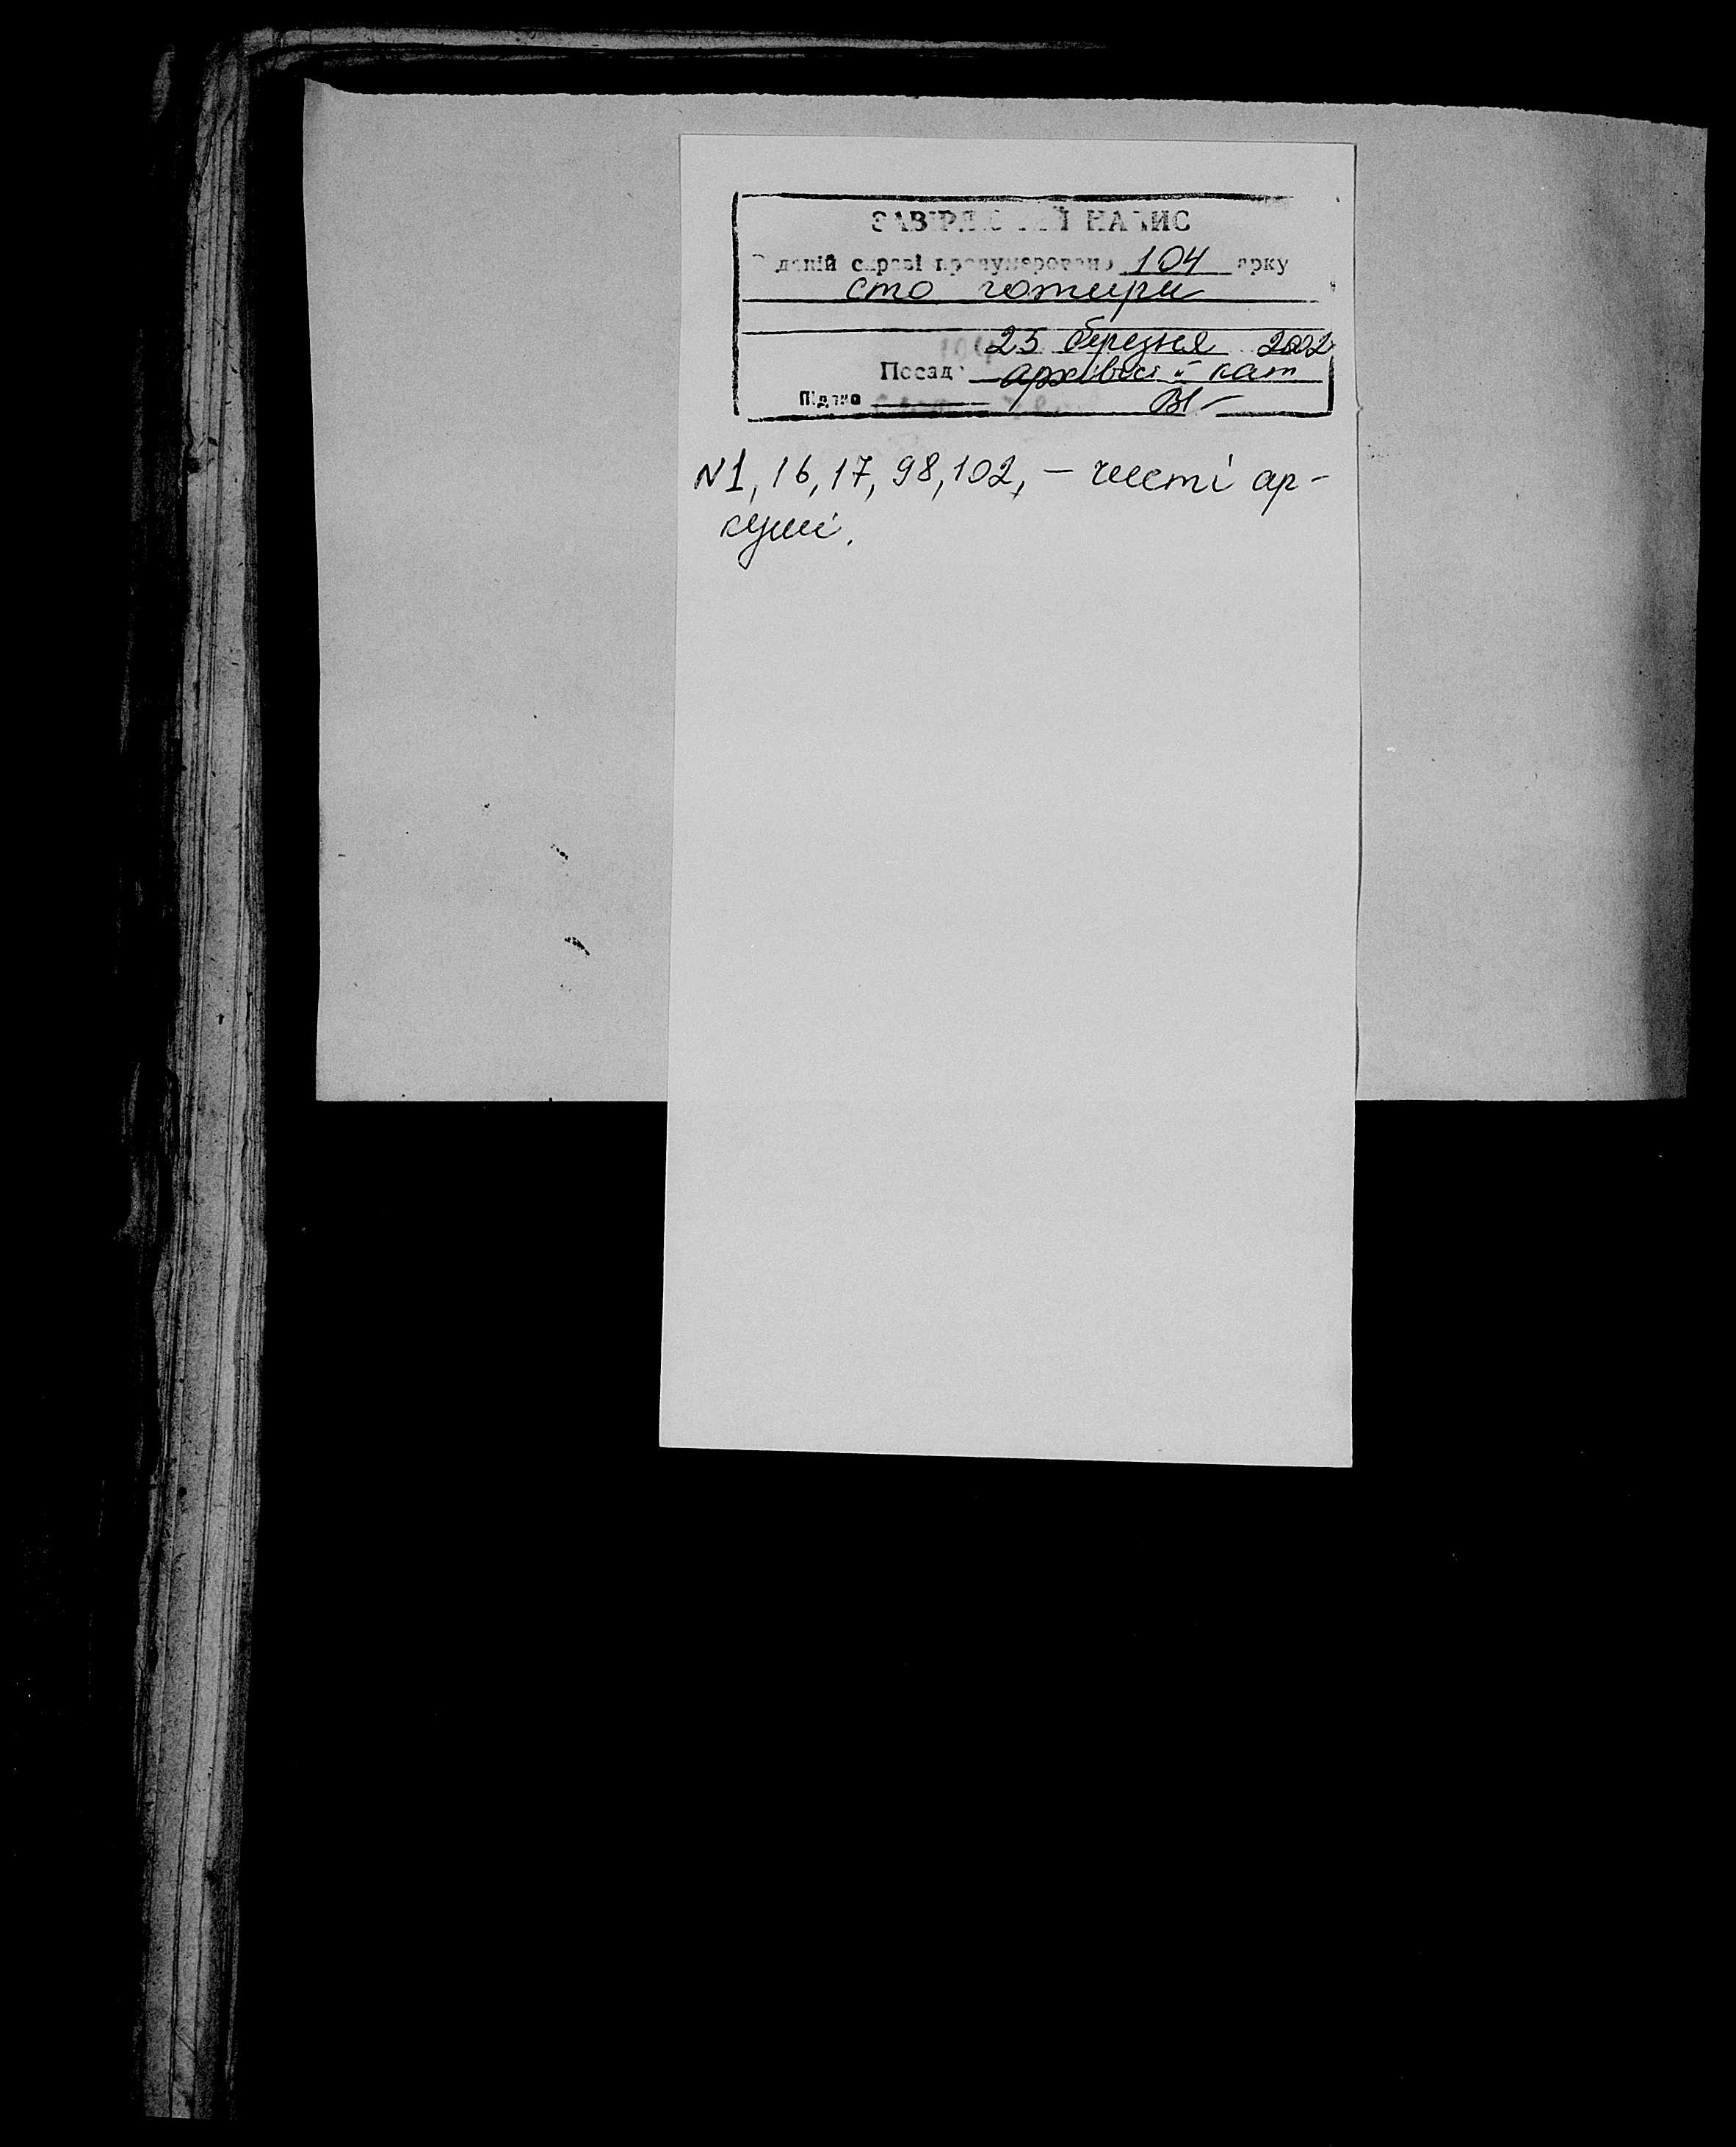 ЗАВІРЯЮЧИЙ НАПИС
В даній справі пронумеровано 104 арку
сто чотири
25 березня 2002
Посада архівіст II кат
Підпис
N1, 16, 17, 98, 102, – чисті ар-
куші.